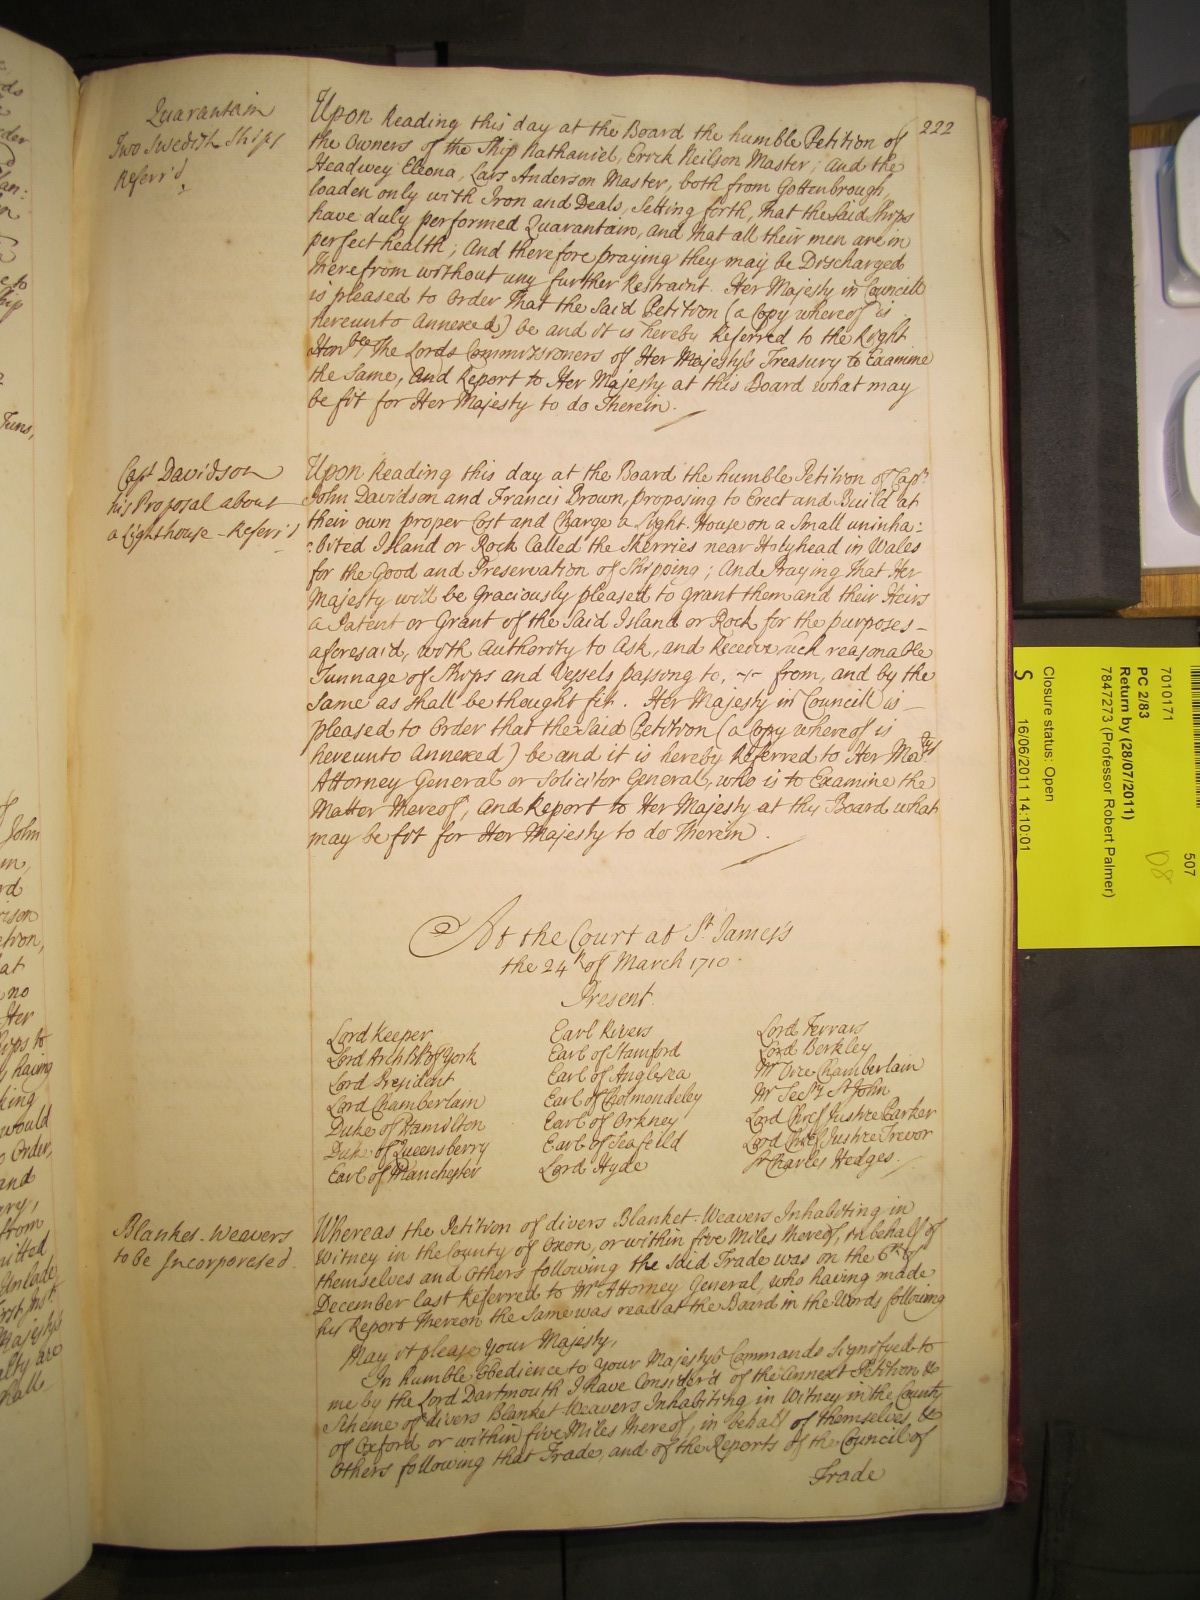 222
Quarantain
Two Swedish Ships
Referr'd
Upon Reading this day at the Board the humble Petition of
the Owners of the Ship Nathaniel, Errick Neilson Master; And the
Headwey Eleona, Lars Anderson Master, both from Gottenbrough,
loaden only with Iron and Deals, Setting forth, That the Said Ships
have duly performed Quarantain, and that all their men are in
perfect health; And therefore praying they may be Discharged
therefrom without any further Restraint. Her Majesty in Councill
is pleased to Order That the Said Petition (a Copy whereof is
hereunto Annexed) be and it is hereby Referred to the Right
Honble The Lords Commissioners of Her Majesty's Treasury to Examine
the Same, And Report to Her Majesty at this Board what may
be fit for Her Majesty to do Therein.
Capt Davidson
his Proposal about
a Lighthouse - Referr'd
Upon Reading this day at the Board the humble Petition of Capn
John Davidson and Francis Brown, proposing to Erect and Build at
their own proper Cost and Charge a Light-House on a Small uninha:
:bited Island or Rock Called the Skerries near Holyhead in Wales
for the Good and Preservation of Shipping; And Praying That Her
Majesty will be Graciously pleased to grant them and their Heirs
a Patent or Grant of the Said Island or Rock for the purposes -
aforesaid, with Authority to Ask, and Receive such reasonable
Tunnage of Ships and Vessels passing to, from, and by the
Same as shall be thought fit. Her Majesty in Councill is -
pleased to Order that the Said Petition (a Copy whereof is
hereunto Annexed) be and it is hereby Referred to Her Matys
Attorney General or Solicitor General, who is to Examine the
Matter thereof, And Report to Her Majesty at this Board what
may be fit for Her Majesty to do Therein.
At the Court at St James's
the 24th of March 1710
Present
Lord Keeper
Lord ArchBp of York
Lord President
Lord Chamberlain
Duke of Hamilton
Duke of Queensberry
Earl of Manchester
Earl Rivers
Earl of Stamford
Earl of Anglesea
Earl of Cholmondeley
Earl of Orkney
Earl of Seafeild
Lord Hyde
Lord Ferrars
Lord Berkley
Mr Vice Chamberlain
Mr Secry St John
Lord Chief Justice Parker
Lord Chief Justice Trevor
Sr Charles Hedges.
Blanket-Weavers
to be Incorporated.
Whereas the Petition of divers Blanket-Weavers Inhabiting in
Witney in the County of Oxon, or within five Miles thereof, on behalf of
themselves and Others following the Said Trade was on the 6th of
December last Referred to Mr Attorney General, who having made
his Report Thereon the Same was read at the Board in the Words following
May it please Your Majesty,
In humble Obedience to Your Majesty's Commands Signifyed to
me by the Lord Dartmouth I have Consider'd of the Annext Petition &
Scheme of divers Blanket-Weavers Inhabiting in Witney in the County
of Oxford or within five Miles thereof, in behalf of themselves, &
Others following that Trade, and of the Reports of the Council of
Trade
7010171
507
PC 2/83
Return by (28/07/2011)
7847273 (Professor Robert Palmer)
Closure status: Open
S
16/06/2011 14:10:01